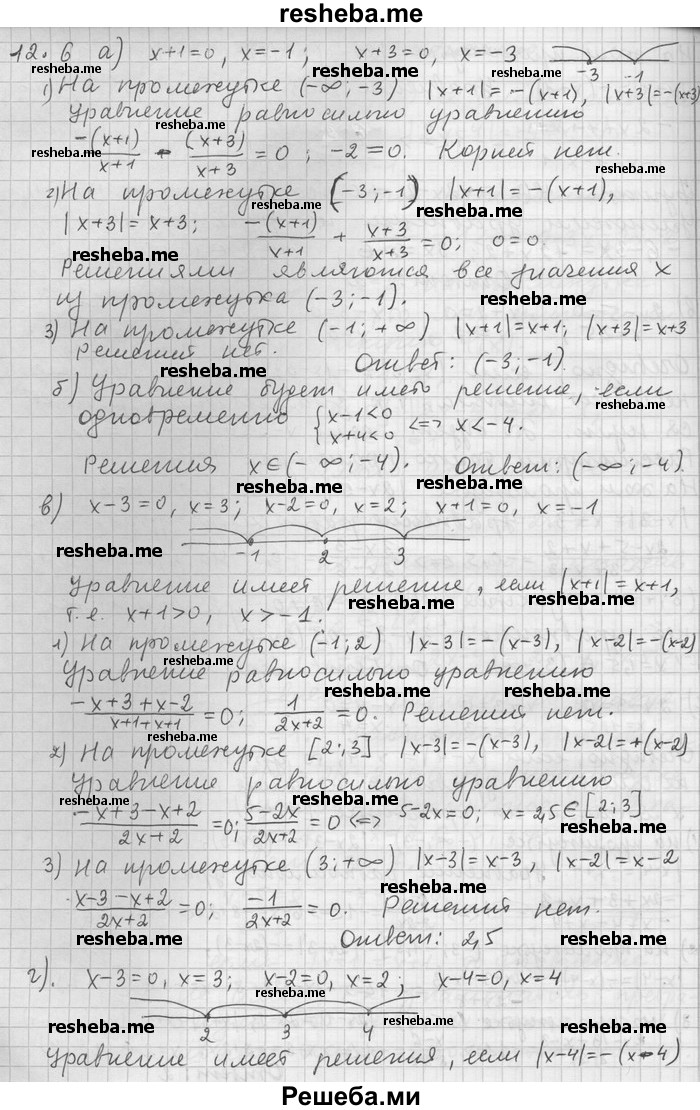 resheba.me
12.6 а) x+1=0, x=-1; x+3=0, x=-3
resheba.me resheba.me resheba.me
-3 -1
1) На промежутке (-∞;-3) |x+1|=-(x+1), |x+3|=-(x+3)
Уравнение равносильно уравнению
resheba.me
-(x+1)/x+1 - (x+3)/x+3 = 0; -2=0. Корней нет.
resheba.me resheba.me
2) На промежутке (-3;-1) |x+1|=-(x+1),
resheba.me
|x+3|=x+3; -(x+1)/x+1 + x+3/x+3 = 0; 0=0.
resheba.me resheba.me
Решениями являются все значения x
из промежутка (-3;-1).
resheba.me
3) На промежутке (-1;+∞) |x+1|=x+1; |x+3|=x+3
Решений нет. Ответ: (-3;-1).
resheba.me resheba.me
б) Уравнение будет иметь решение, если
resheba.me
одновременно {x-1<0 x+4<0 <=> x<-4.
Решения x∈(-∞;-4). Ответ: (-∞;-4).
resheba.me resheba.me
в) x-3=0, x=3; x-2=0, x=2; x+1=0, x=-1
resheba.me resheba.me
-1 2 3
Уравнение имеет решение, если |x+1|=x+1,
resheba.me resheba.me
т.е. x+1>0, x>-1.
1) На промежутке (-1;2) |x-3|=-(x-3), |x-2|=-(x-2)
resheba.me
Уравнение равносильно уравнению
resheba.me resheba.me
-x+3+x-2/x+1+x+1 = 0; 1/2x+2 = 0. Решений нет.
resheba.me
2) На промежутке [2;3] |x-3|=-(x-3), |x-2|=+(x-2)
Уравнение равносильно уравнению
resheba.me
-x+3-x+2/2x+2 = 0; 5-2x/2x+2 = 0 <=> 5-2x=0; x=2,5∈[2;3]
resheba.me
3) На промежутке (3;+∞) |x-3|=x-3, |x-2|=x-2
resheba.me
x-3-x+2/2x+2 = 0; -1/2x+2 = 0. Решений нет.
Ответ: 2,5
resheba.me resheba.me
г). x-3=0, x=3; x-2=0, x=2; x-4=0, x=4
resheba.me
2 3 4
resheba.me resheba.me resheba.me
Уравнение имеет решения, если |x-4|=-(x-4)
Решеба.ми